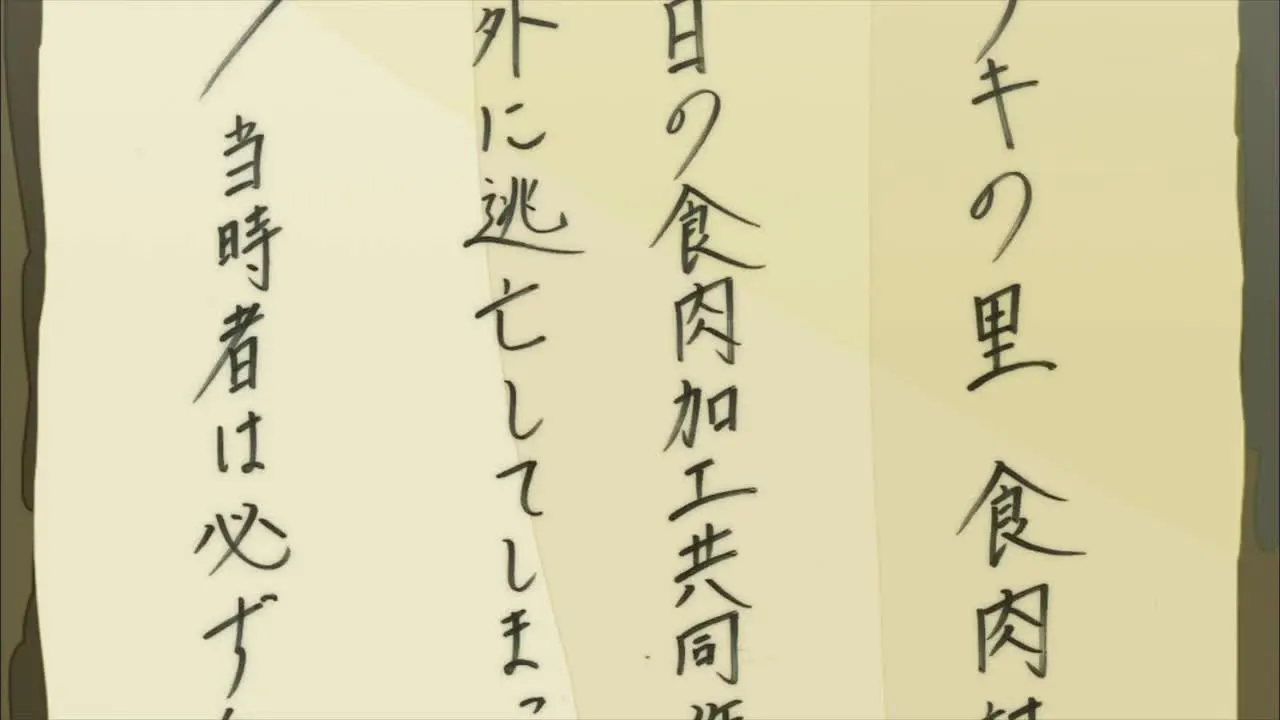 キの里 食肉
日の食肉加工共同
外に逃亡してしまっ
当時者は必ず